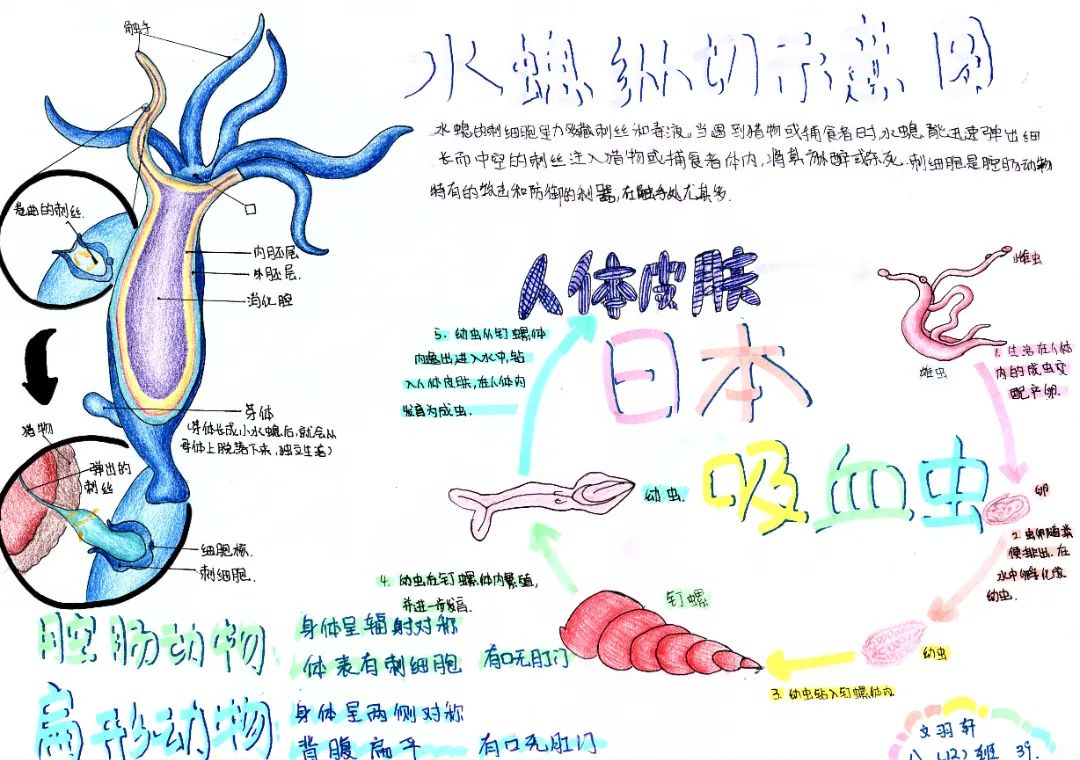 水螅纵切示意图
水螅的刺细胞里刺丝和毒液。当遇到猎物或捕食者时,水螅能迅速弹出细
长而中空的刺丝注入猎物或捕食者体内,将其麻醉或杀死.刺细胞是腔肠动物
特有的攻击和防御的利器,在触手处尤其多.
触手
卷曲的刺丝.
口
内胚层
外胚层.
消化腔
芽体
(芽体长成小水螅后,就会从
母体上脱落下来,独立生活)
猎物
弹出的
刺丝
细胞核.
刺细胞.
人体皮肤
日本
吸血虫
雌虫
雄虫
1. 生活在人体
内的成虫交
配产卵.
卵
2. 虫卵随粪
便排出.在
水中孵化成
幼虫.
幼虫
3. 幼虫钻入钉螺体内
钉螺
4. 幼虫在钉螺体内繁殖,
并进一步发育.
幼虫.
5. 幼虫从钉螺体
内逸出进入水中,钻
入人体皮肤,在人体内
发育为成虫.
腔肠动物
身体呈辐射对称
体表有刺细胞 有口无肛门
扁形动物
身体呈两侧对称
背腹扁平 有口无肛门
文羽轩
八(12)班 39.